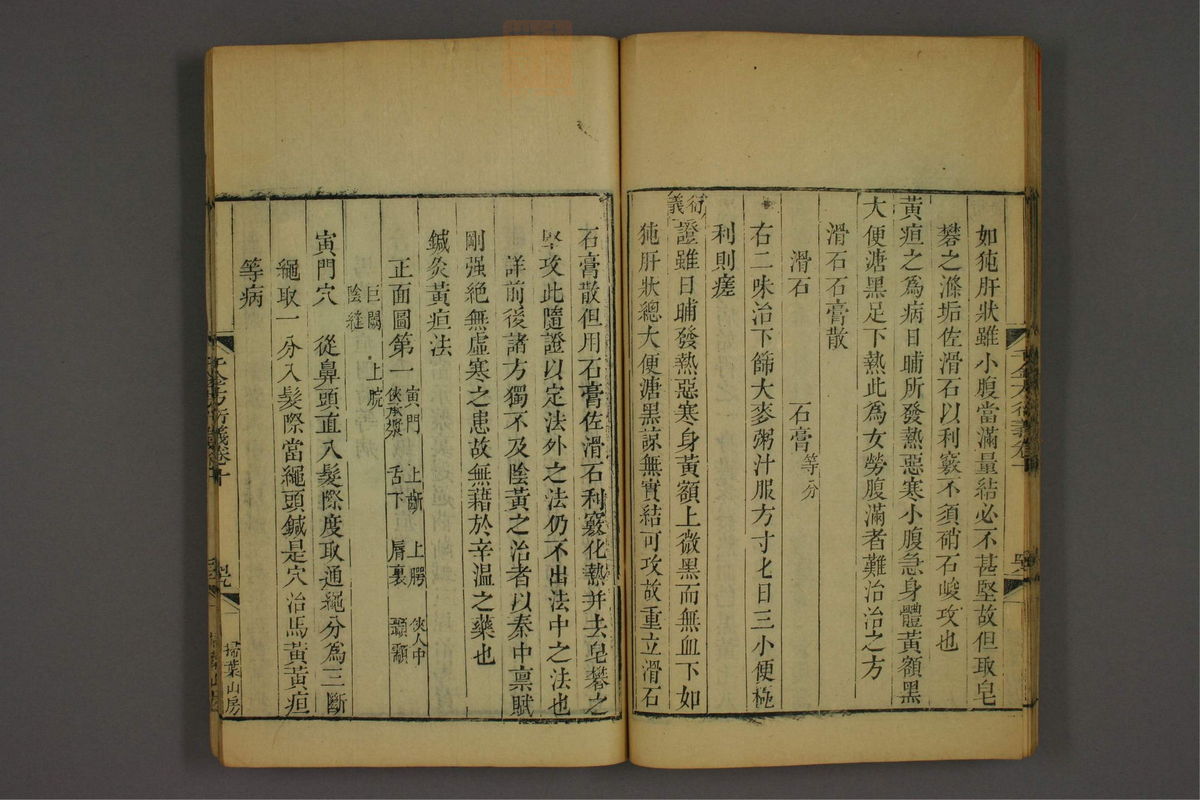 如㹠肝狀雖小腹當滿量結必不甚堅故但取皂
礬之滌垢佐滑石以利竅不須硝石峻攻也
黃疸之爲病日晡所發熱惡寒小腹急身體黃額黑
大便溏黑足下熱此爲女勞腹滿者難治治之方
滑石石膏散
滑石　石膏等分
右二味治下篩大麥粥汁服方寸匕日三小便極
利則瘥
衍義
證雖日晡發熱惡寒身黃額上微黑而無血下如
㹠肝狀總大便溏黑諒無實結可攻故重立滑石
石膏散但用石膏佐滑石利竅化熱并去皂礬之
堅攻此隨證以定法外之法仍不出法中之法也
詳前後諸方獨不及陰黃之治者以秦中禀賦
剛强絶無虛寒之患故無藉於辛溫之藥也
鍼灸黃疸法
正面圖第一　寅門　上齗　上腭　俠人中
俠承漿　舌下　脣裏　顬顬
巨闕　上脘
陰縫
寅門穴　從鼻頭直入髮際度取通繩分爲三斷
繩取一分入髮際當繩頭鍼是穴治馬黃黃疸
等病
千金方衍義卷十
掃葉山房